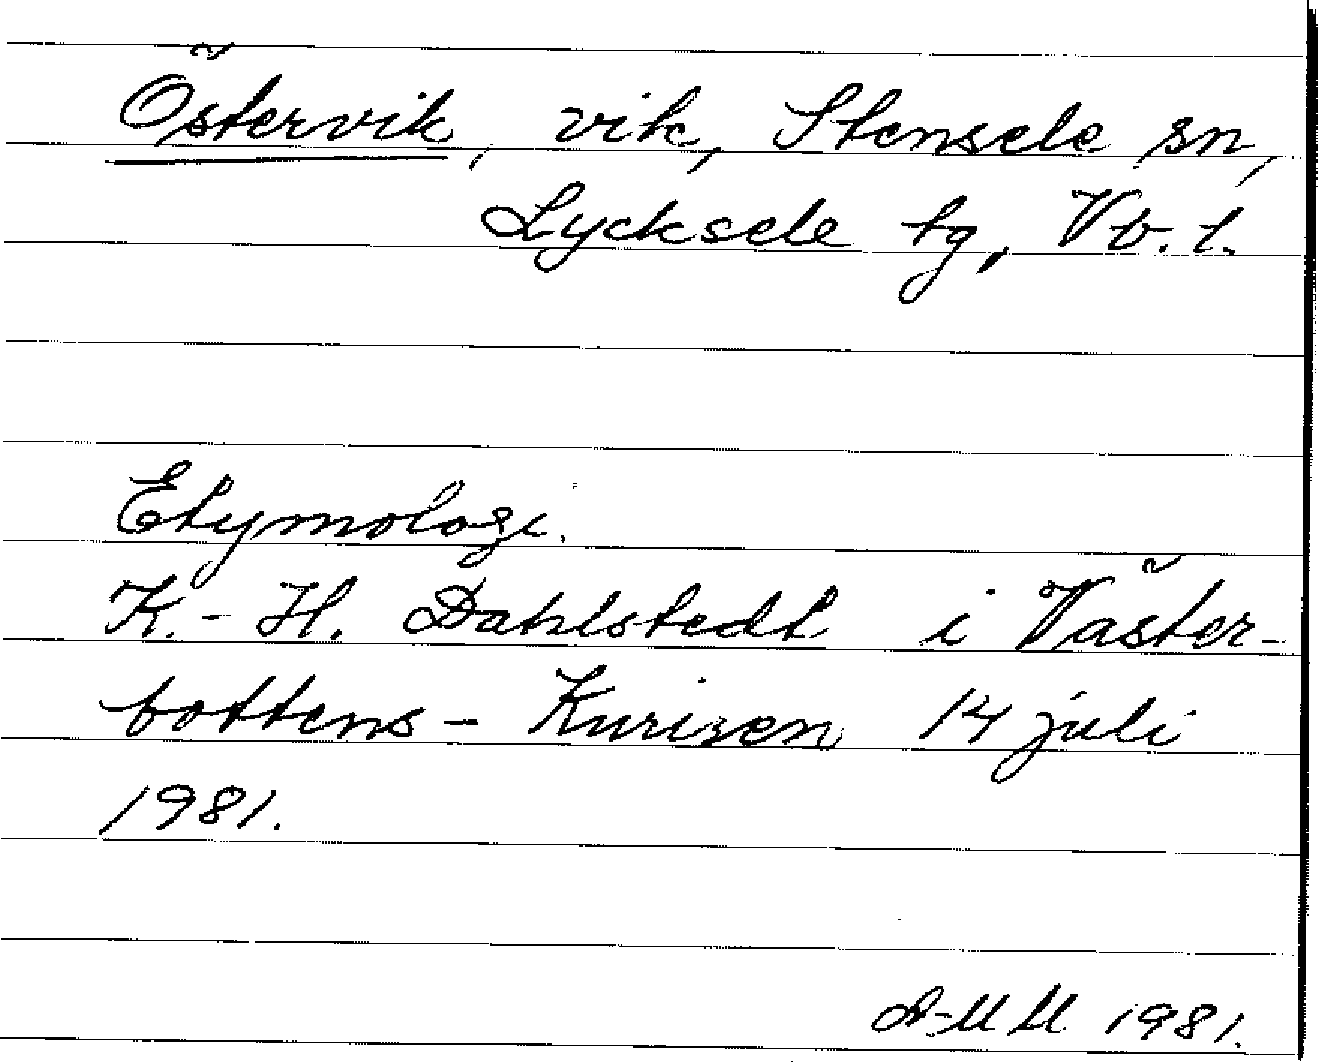 Östervik, vik, Stensele sn,
Lycksele tg, Vb. l.
Etymologi.
K.-H. Dahlstedt i Väster-
bottens-Kuriren 14 juli
1981.
A-MM 1981.